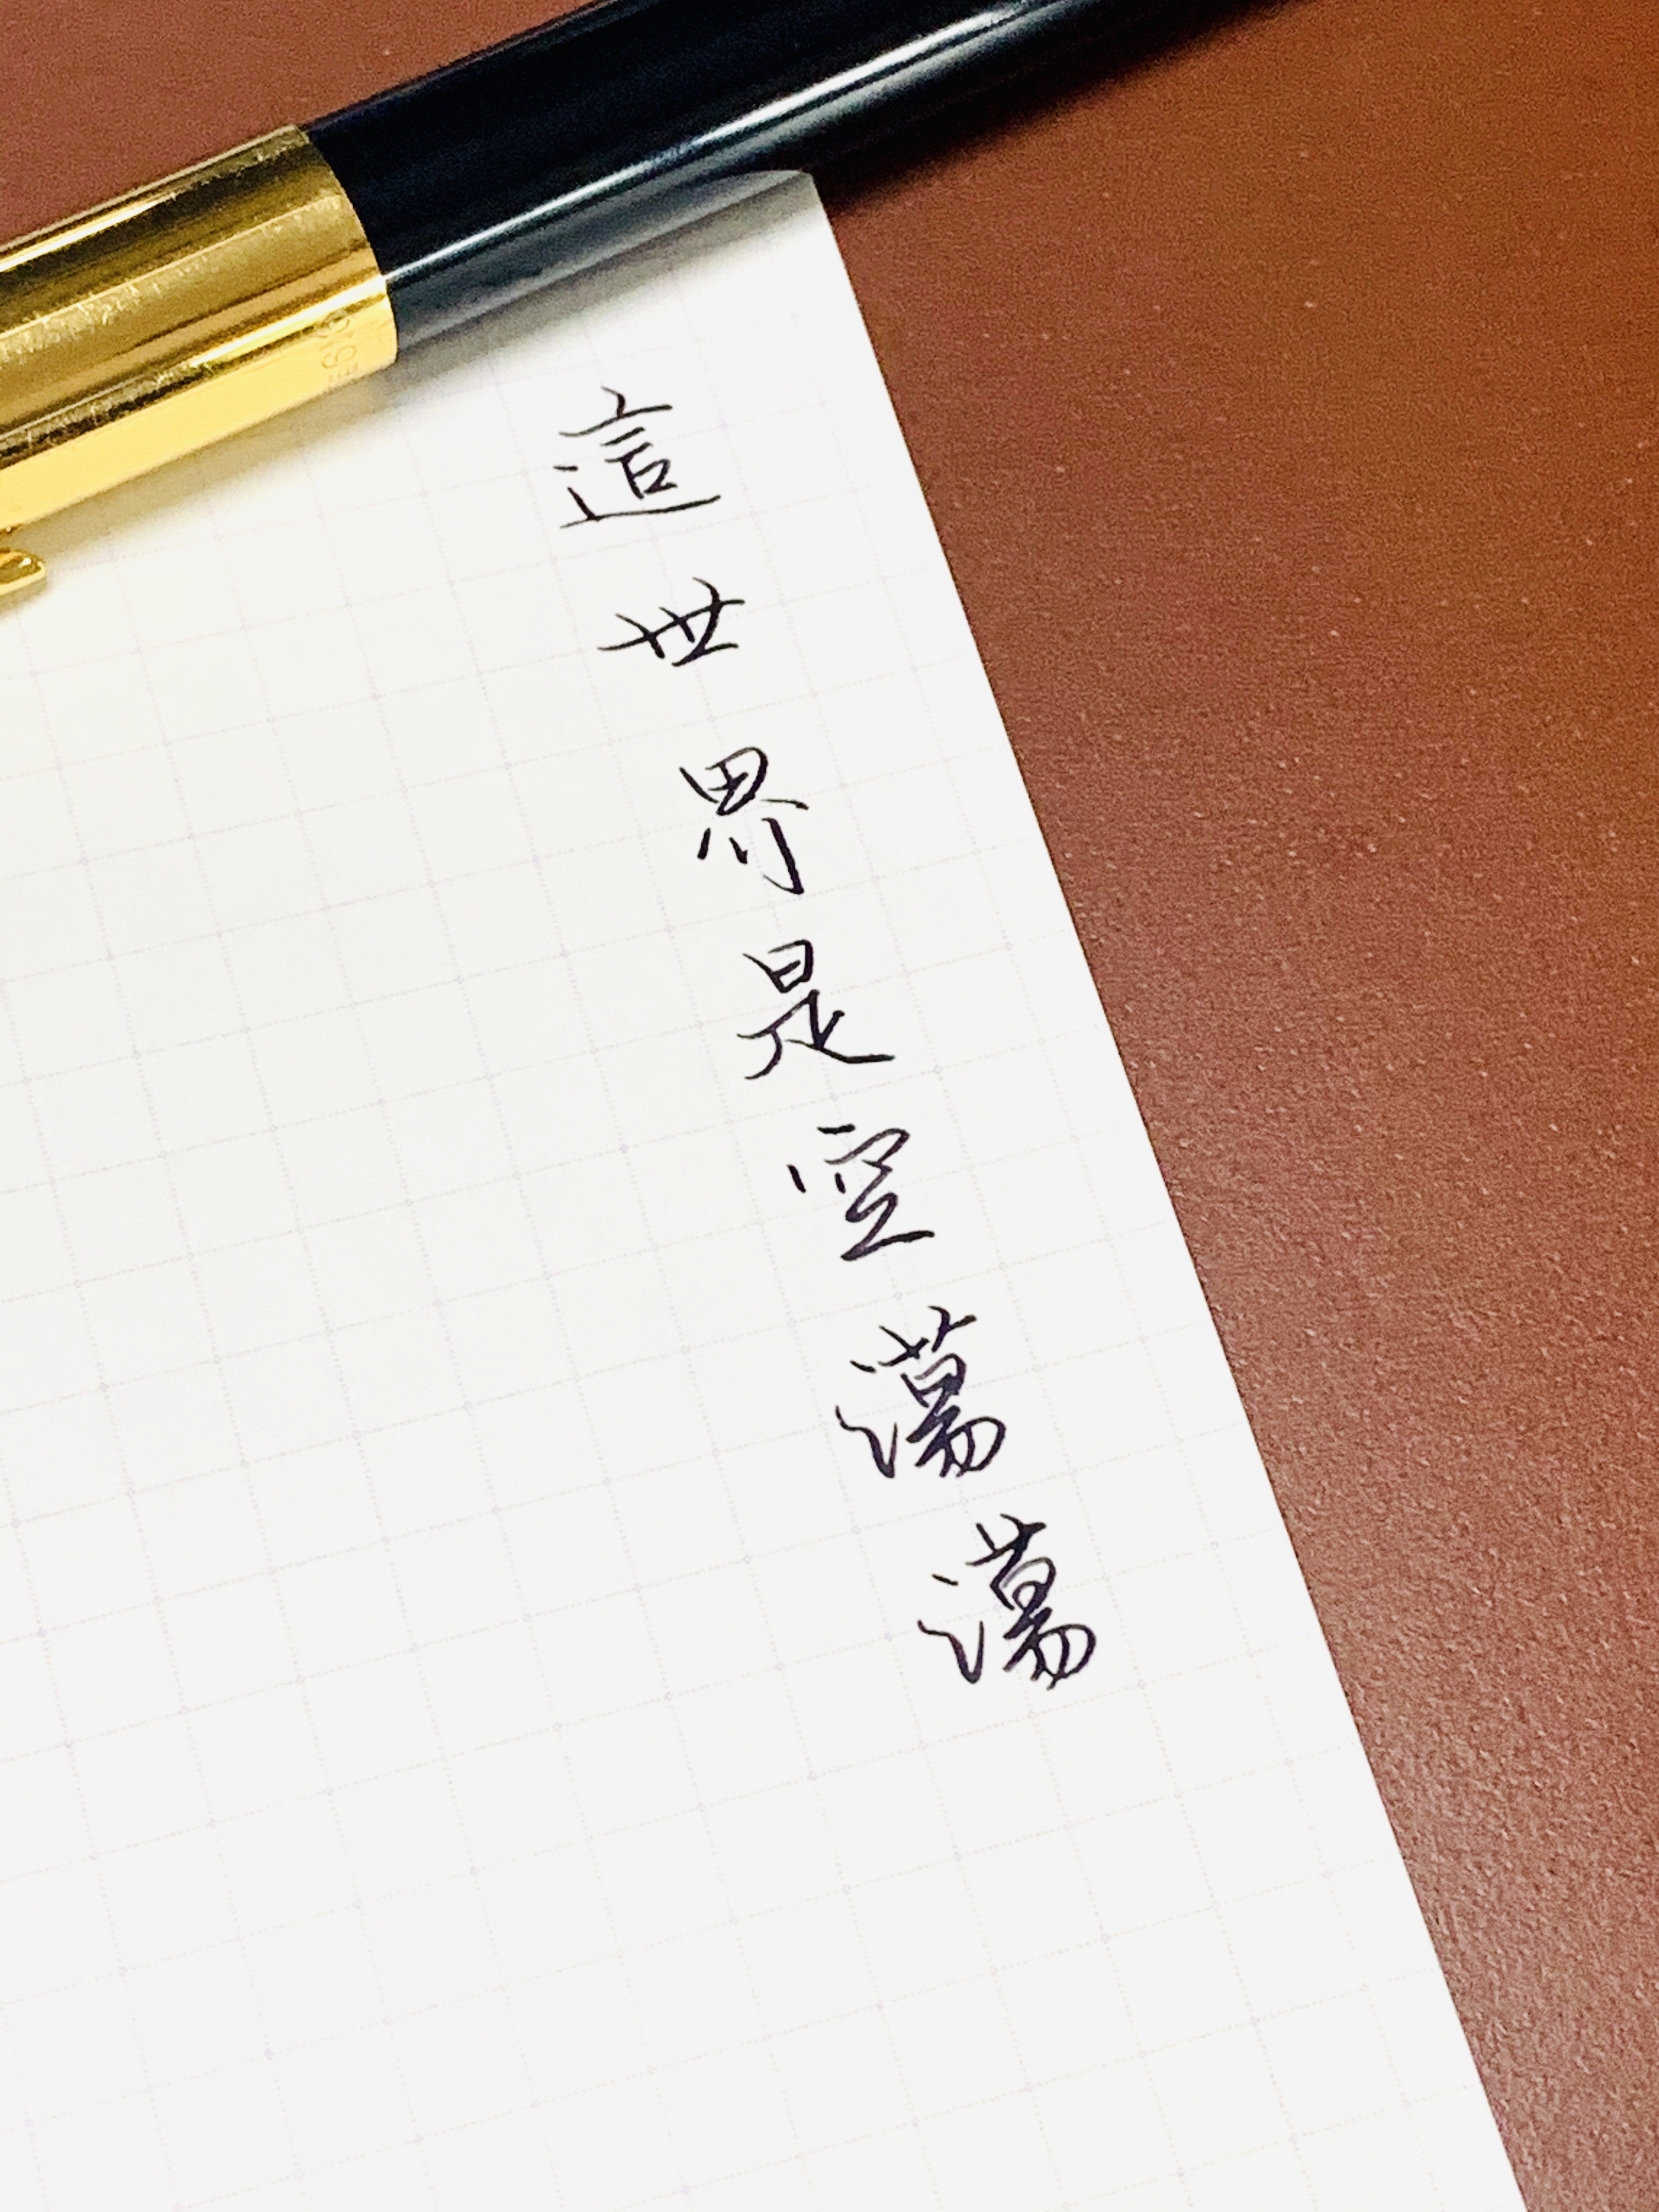 這世界是空蕩蕩